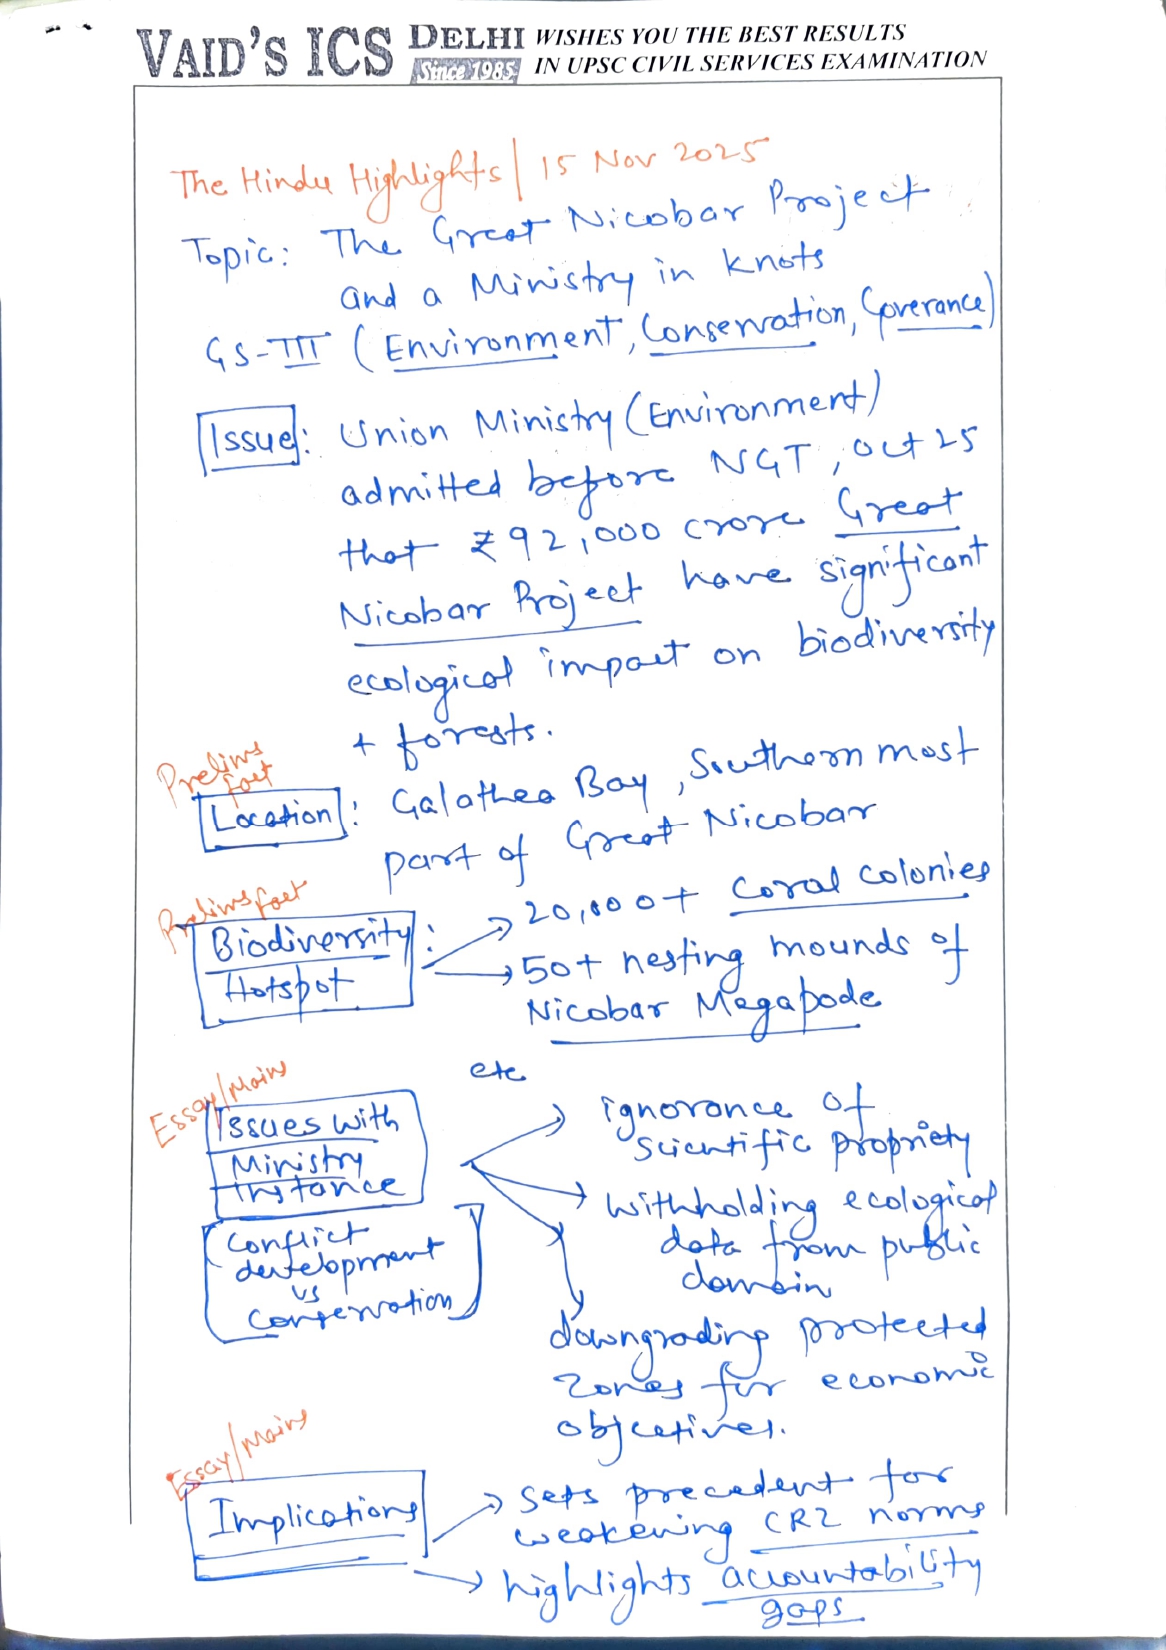 VAID'S ICS DELHI WISHES YOU THE BEST RESULTS
Since 1985 IN UPSC CIVIL SERVICES EXAMINATION
The Hindu Highlights | 15 Nov 2025
Topic: The Great Nicobar Project
and a Ministry in knots
GS-III (Environment, Conservation, Goverance)
Issue: Union Ministry (Environment)
admitted before NGT, Oct 25
that ₹92,000 crore Great
Nicobar Project have significant
ecological impact on biodiversity
+ forests.
Prelims
fact
Location: Galathea Bay, Southern most
part of Great Nicobar
Prelims fact
Biodiversity: → 20,000+ coral colonies
Hotspot → 50+ nesting mounds of
Nicobar Megapode
etc
Essay/Mains
Issues with
Ministry
Instance
→ ignorance of
scientific propriety
→ withholding ecological
data from public
domain
Conflict
development
vs
conservation
→ downgrading protected
zones for economic
objectives.
Essay/Mains
Implications → sets precedent for
weakening CRZ norms
→ highlights accountability
gaps